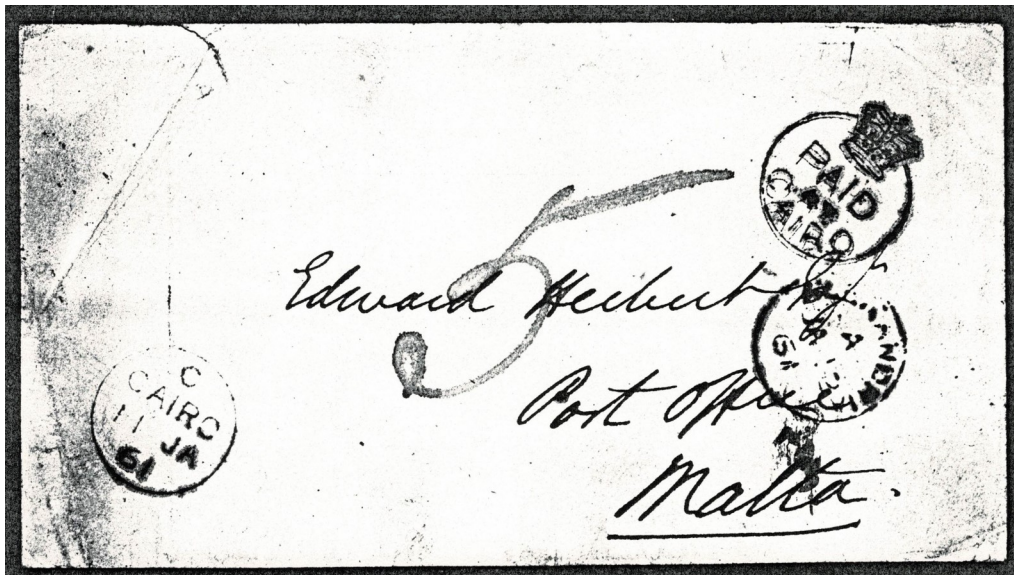 PAID
CAIRO
5
Edward Herbert Esq
Post Office
Malta.
C
CAIRO
11
JA
61